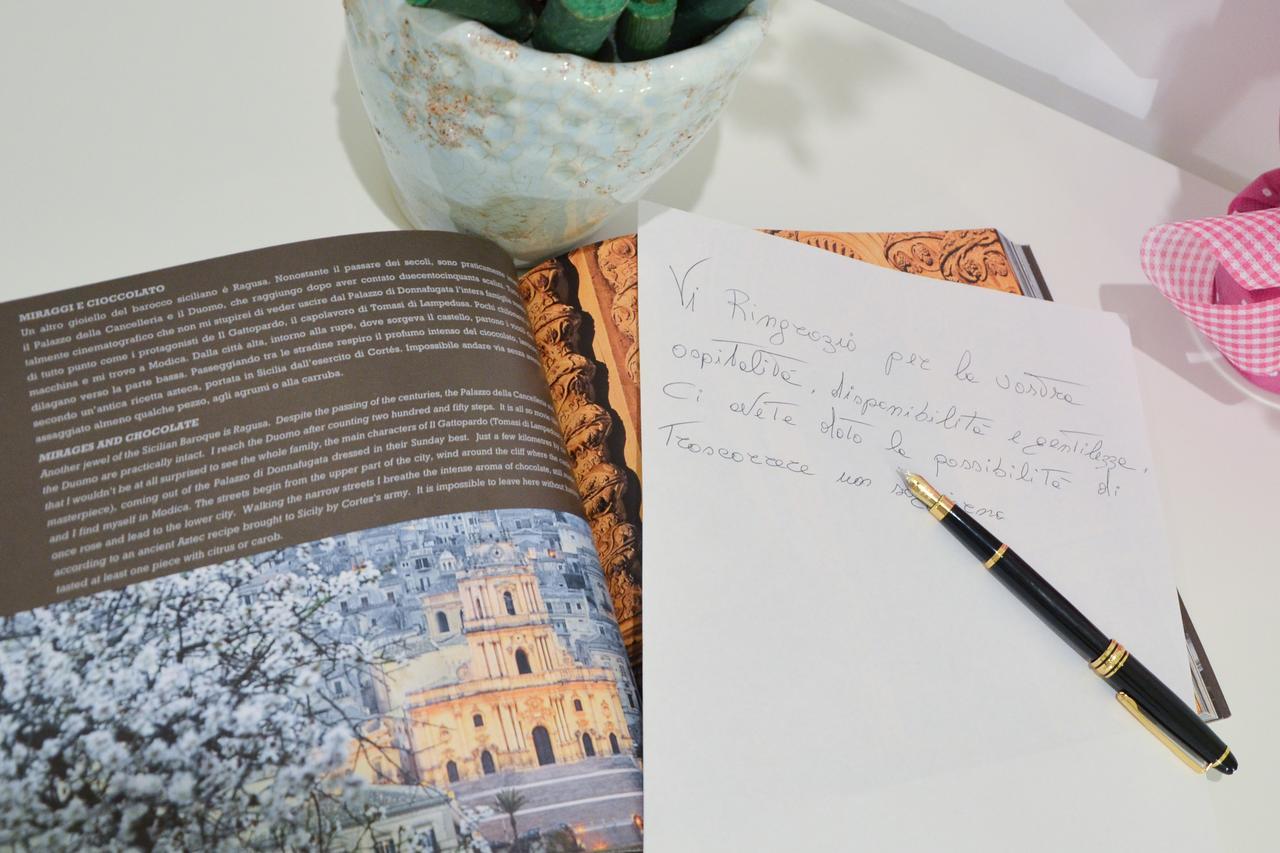 MIRAGGI E CIOCCOLATO
Un altro gioiello del barocco siciliano è Ragusa. Nonostante il passare dei secoli, sono praticamente
il Palazzo della Cancelleria e il Duomo, che raggiungo dopo aver contato duecentocinquanta scalini.
talmente cinematografico che non mi stupirei di veder uscire dal Palazzo di Donnafugata l'intera famiglia
di tutto punto come i protagonisti de Il Gattopardo, il capolavoro di Tomasi di Lampedusa. Pochi
macchina e mi trovo a Modica. Dalla città alta, intorno alla rupe, dove sorgeva il castello, partono i
dilagano verso la parte bassa. Passeggiando tra le stradine respiro il profumo intenso del cioccolato,
secondo un'antica ricetta azteca, portata in Sicilia dall'esercito di Cortés. Impossibile andare via senza
assaggiato almeno qualche pezzo, agli agrumi o alla carruba.
MIRAGES AND CHOCOLATE
Another jewel of the Sicilian Baroque is Ragusa. Despite the passing of the centuries, the Palazzo della
the Duomo are practically intact. I reach the Duomo after counting two hundred and fifty steps. It is all so
that I wouldn't be at all surprised to see the whole family, the main characters of Il Gattopardo (Tomasi di
masterpiece), coming out of the Palazzo di Donnafugata dressed in their Sunday best. Just a few kilometres
and I find myself in Modica. The streets begin from the upper part of the city, wind around the cliff where the
once rose and lead to the lower city. Walking the narrow streets I breathe the intense aroma of chocolate, still
according to an ancient Aztec recipe brought to Sicily by Cortez's army. It is impossible to leave here without
tasted at least one piece with citrus or carob.
Vi Ringrazio per la vostra
ospitalità, disponibilità e gentilezza.
Ci avete dato la possibilità di
Trascorrere un